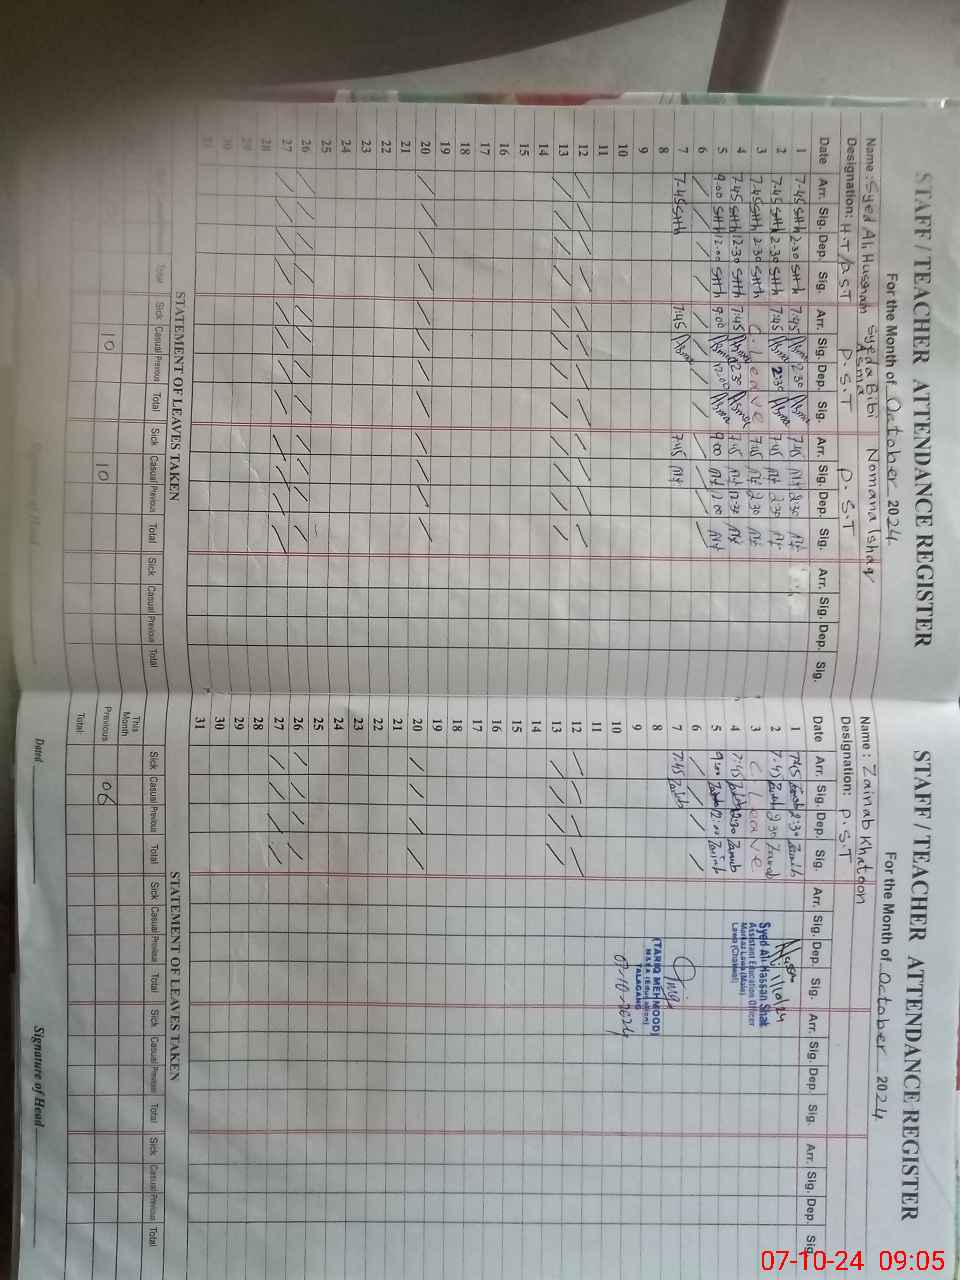 STAFF / TEACHER ATTENDANCE REGISTER
For the Month of October 2024
Name : Syed Ali Hussnain Syeda Bibi Asma Nomana Ishaq
Designation: H.T/ P.S.T P.S.T
Date Arr. Sig. Dep. Sig. Arr. Sig. Dep. Sig. Arr. Sig. Dep. Sig. Arr. Sig. Dep. Sig.
1 7-45 SHh 2-30 SHh 7:45 Asma 2:30 Asma 7:45 2:30
2 7-45 SHh 2-30 SHh 7:45 Asma 2:30 Asma 7:45 2:30
3 7-45 SHh 2-30 SHh C. Leave 7:45 2:30
4 7-45 SHh 12-30 SHh 7:45 Asma 12:30 Asma 7:45 12:30
5 9-00 SHh 12-00 SHh 9:00 Asma 12:00 Asma 9:00 12:00
6
7 7-45 SHh 7:45 Asma 7:45
8
9
10
11
12
13
14
15
16
17
18
19
20
21
22
23
24
25
26
27
28
29
30
31
STATEMENT OF LEAVES TAKEN
Total Sick Casual Previous Total Sick Casual Previous Total Sick Casual Previous Total
10 10
STAFF / TEACHER ATTENDANCE REGISTER
For the Month of October 2024
Name : Zainab Khatoon
Designation: P.S.T
Date Arr. Sig. Dep. Sig. Arr. Sig. Dep. Sig. Arr. Sig. Dep. Sig. Arr. Sig. Dep. Sig.
1 7:45 Zainab 2:30 Zainab
2 7:45 Zainab 2:30 Zainab
3 C. Leave
4 7:45 Zainab 12:30 Zainab
5 9:00 Zainab 12:00 Zainab
6
7 7:45 Zainab
8
9
10
11
12
13
14
15
16
17
18
19
20
21
22
23
24
25
26
27
28
29
30
31
Syed Ali Hassan Shah
Assistant Education Officer
Markaz Lawa (Male)
Lawa (Chakwal)
(TARIQ MEHMOOD)
M&EA (Education)
TALAGANG
07-10-2024
STATEMENT OF LEAVES TAKEN
Sick Casual Previous Total Sick Casual Previous Total Sick Casual Previous Total Sick Casual Previous Total
This Month
Previous 06
Total
Dated
Signature of Head
07-10-24 09:05